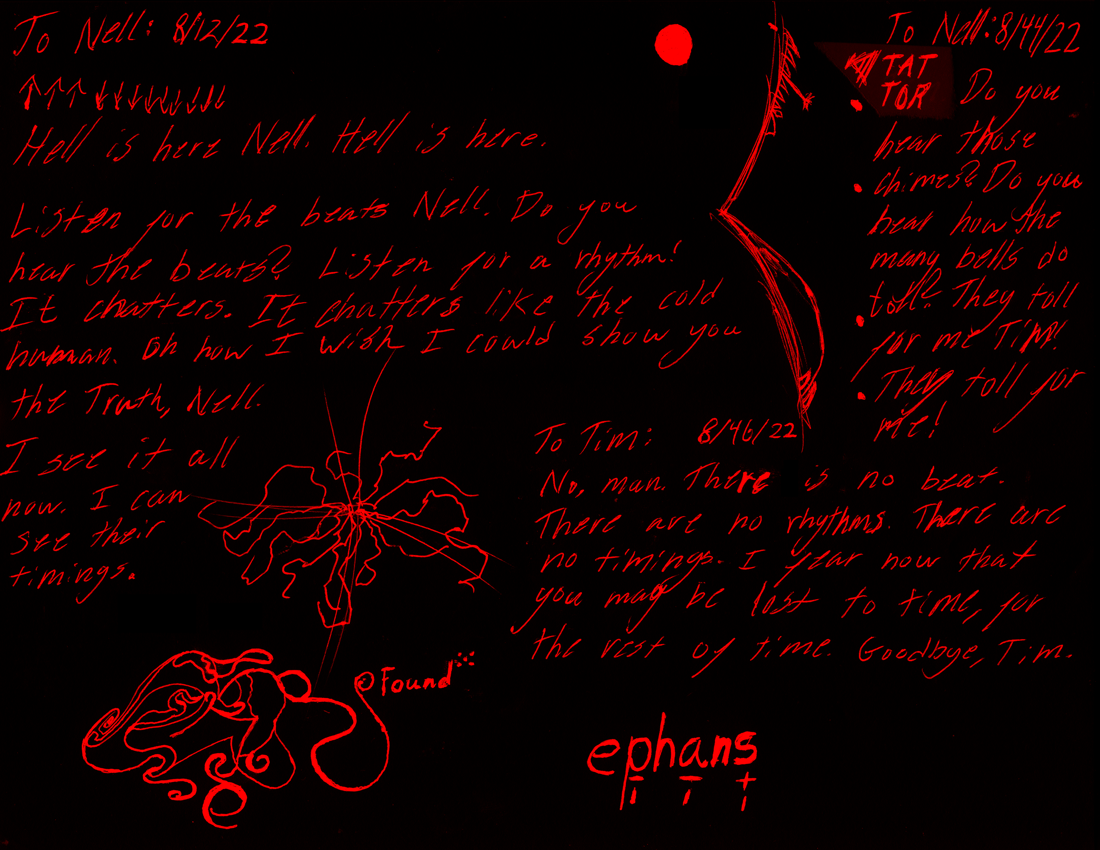 To Nell: 8/12/22
↑↑↑↓↓↓↓↓↓↓↓↓
Hell is here Nell. Hell is here.
Listen for the beats Nell. Do you
hear the beats? Listen for a rhythm!
It chatters. It chatters like the cold
human. Oh how I wish I could show you
the Truth, Nell.
I see it all
now. I can
see their
timings.
To Nell: 8/44/22
TAT
TOR
Do you
hear those
chimes? Do you
hear how the
many bells do
toll? They toll
for me Tim!
They toll for
me!
To Tim: 8/46/22
No, man. There is no beat.
There are no rhythms. There are
no timings. I fear now that
you may be lost to time, for
the rest of time. Goodbye, Tim.
@Found
ephans